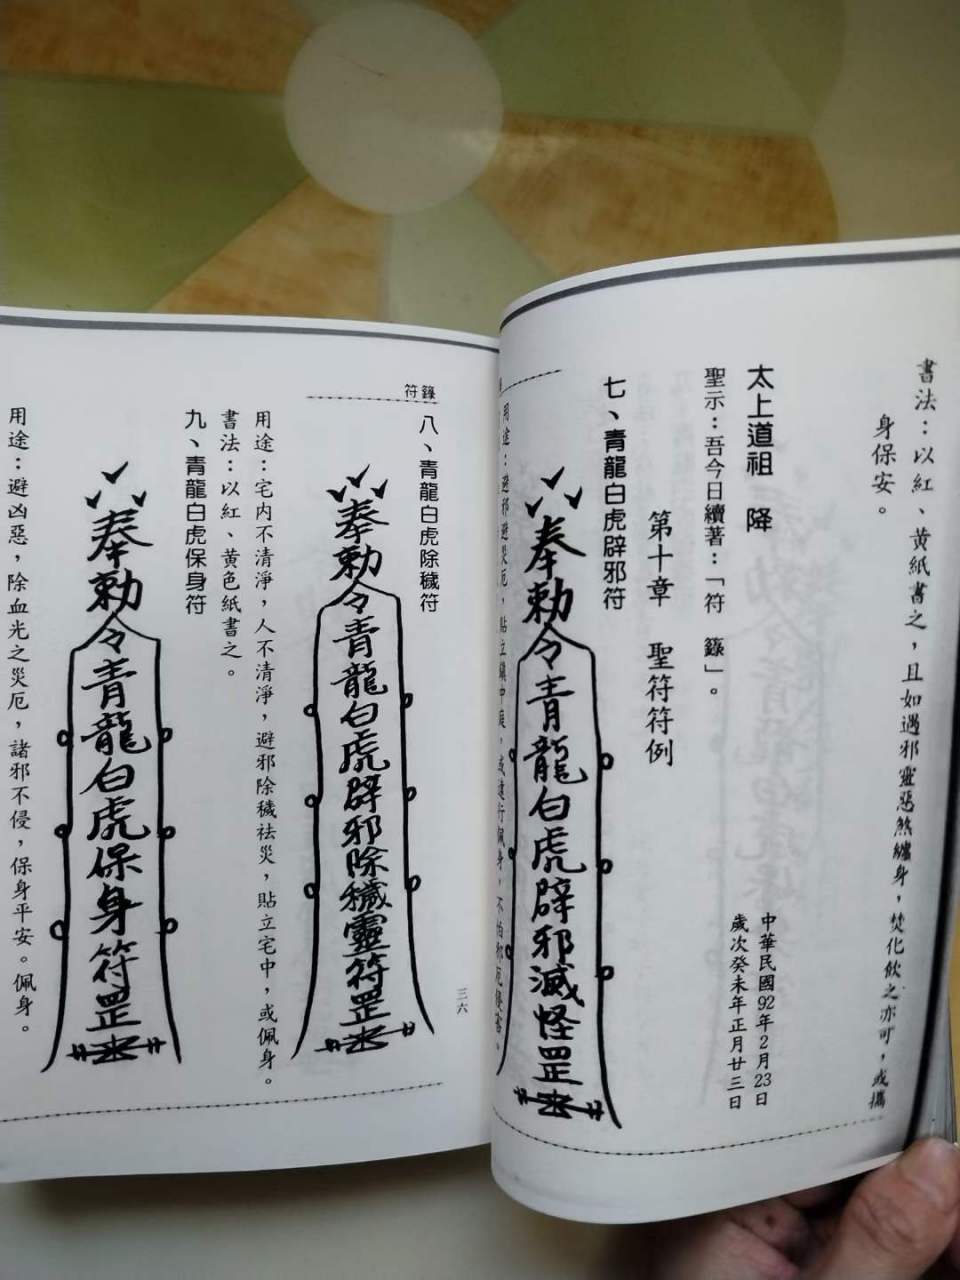 書法：以紅、黃紙書之，且如遇邪靈惡煞纏身，焚化飲之亦可，或攜
身保安。
太上道祖　降
中華民國92年2月23日
歲次癸未年正月廿三日
聖示：吾今日續著：「符　籙」。
第十章　聖符符例
七、青龍白虎辟邪符
奉勅令青龍白虎辟邪滅怪罡
用途：避邪避災厄，貼立鎮中庭，或遠行佩身，不怕邪厄侵害。
符籙
八、青龍白虎除穢符
三六
奉勅令青龍白虎辟邪除穢靈符罡
用途：宅內不清淨，人不清淨，避邪除穢祛災，貼立宅中，或佩身。
書法：以紅、黃色紙書之。
九、青龍白虎保身符
奉勅令青龍白虎保身符罡
用途：避凶惡，除血光之災厄，諸邪不侵，保身平安。佩身。